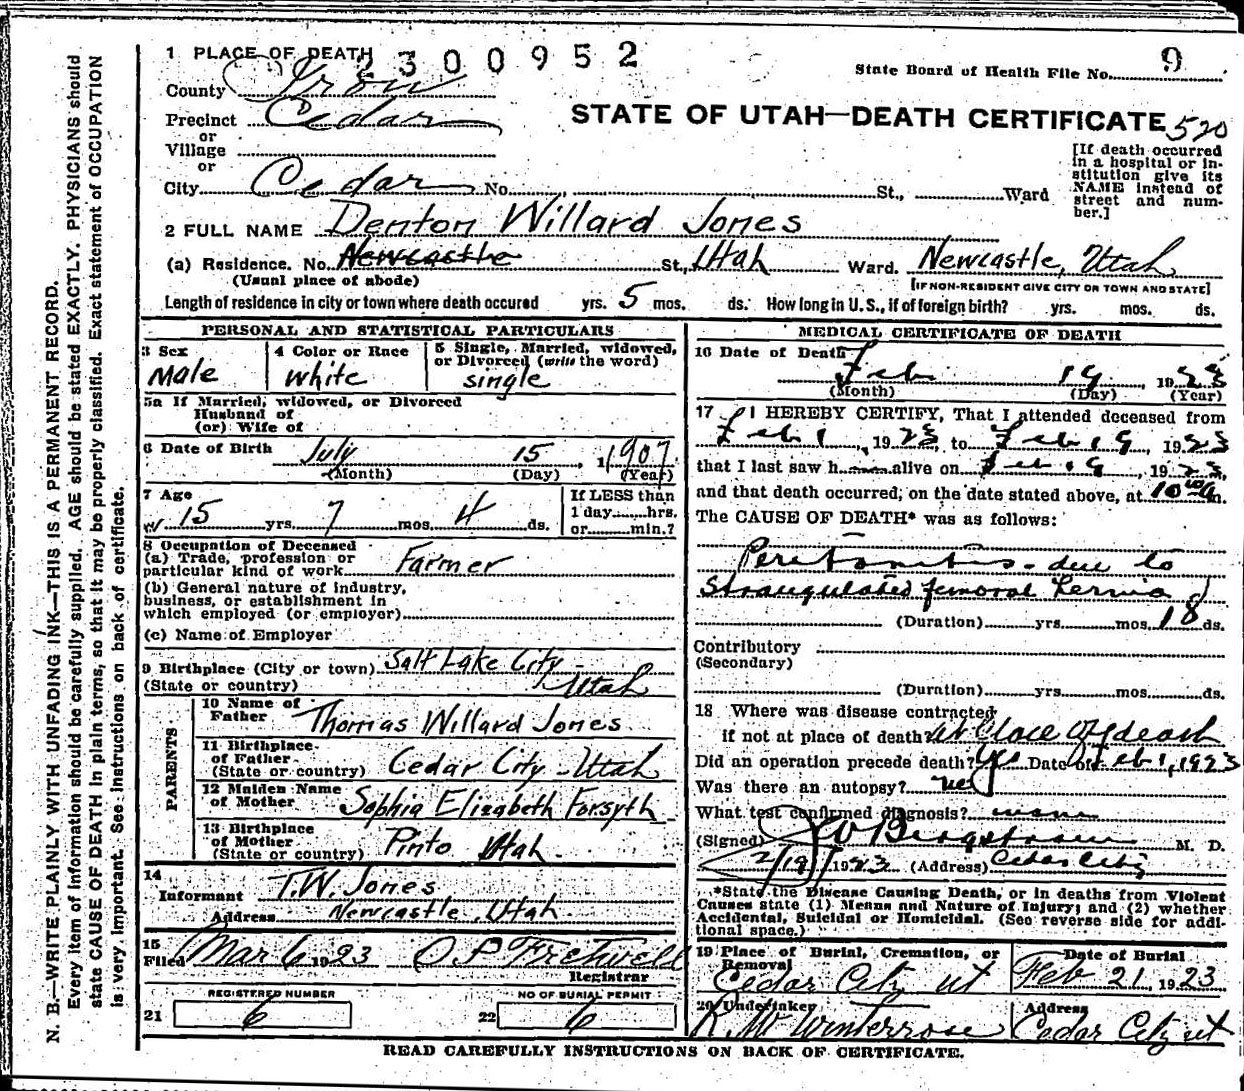 1 PLACE OF DEATH 2300952
State Board of Health File No. 9
County Iron
STATE OF UTAH—DEATH CERTIFICATE 520
Precinct Cedar
or
Village
or
City Cedar No. St., Ward
[If death occurred
in a hospital or in-
stitution give its
NAME instead of
street and num-
ber.]
2 FULL NAME Denton Willard Jones
(a) Residence. No. Newcastle St., Utah Ward. Newcastle, Utah
(Usual place of abode) [IF NON-RESIDENT GIVE CITY OR TOWN AND STATE]
Length of residence in city or town where death occured yrs. 5 mos. ds. How long in U. S., if of foreign birth? yrs. mos. ds.
PERSONAL AND STATISTICAL PARTICULARS
3 Sex
Male
4 Color or Race
White
5 Single, Married, widowed,
or Divorced (write the word)
single
5a If Married, widowed, or Divorced
Husband of
(or) Wife of
6 Date of Birth July 15, 1907
(Month) (Day) (Year)
7 Age
15 yrs. 7 mos. 4 ds.
If LESS than
1 day......hrs.
or......min.?
8 Occupation of Deceased
(a) Trade, profession or
particular kind of work Farmer
(b) General nature of industry,
business, or establishment in
which employed (or employer)
(c) Name of Employer
9 Birthplace (City or town) Salt Lake City -
(State or country) Utah
PARENTS
10 Name of
Father Thomas Willard Jones
11 Birthplace
of Father
(State or country) Cedar City - Utah
12 Maiden Name
of Mother Sophia Elizabeth Forsyth
13 Birthplace
of Mother
(State or country) Pinto Utah.
14
Informant T.W. Jones
Address Newcastle, Utah
15
Filed Mar 6 1923 O.P. Fretwell
Registrar
REGISTERED NUMBER
21 6
NO OF BURIAL PERMIT
22 6
MEDICAL CERTIFICATE OF DEATH
16 Date of Death
Feb 19, 1923
(Month) (Day) (Year)
17 I HEREBY CERTIFY, That I attended deceased from
Feb 1, 1923, to Feb 19 1923
that I last saw h alive on Feb 19 1923,
and that death occurred, on the date stated above, at 10 m.
The CAUSE OF DEATH* was as follows:
Peretonitis - due to
Strangulated femoral hernia
(Duration) yrs. mos. 18 ds.
Contributory
(Secondary)
(Duration) yrs. mos. ds.
18 Where was disease contracted
if not at place of death? at Place of death
Did an operation precede death? Yes Date of Feb 1, 1923
Was there an autopsy?
What test confirmed diagnosis?
(Signed) Bergstrom M. D.
2/19 1923 (Address) Cedar City
*State the Disease Causing Death, or in deaths from Violent
Causes state (1) Means and Nature of Injury; and (2) whether
Accidental, Suicidal or Homicidal. (See reverse side for addi-
tional space.)
19 Place of Burial, Cremation, or
Removal
Cedar City ut
Date of Burial
Feb 21, 1923
20 Undertaker
R. M. Winterrose
Address
Cedar City ut
READ CAREFULLY INSTRUCTIONS ON BACK OF CERTIFICATE.
N. B.—WRITE PLAINLY WITH UNFADING INK—THIS IS A PERMANENT RECORD.
Every item of information should be carefully supplied. AGE should be stated EXACTLY. PHYSICIANS should
state CAUSE OF DEATH in plain terms, so that it may be properly classified. Exact statement of OCCUPATION
is very important. See instructions on back of certificate.